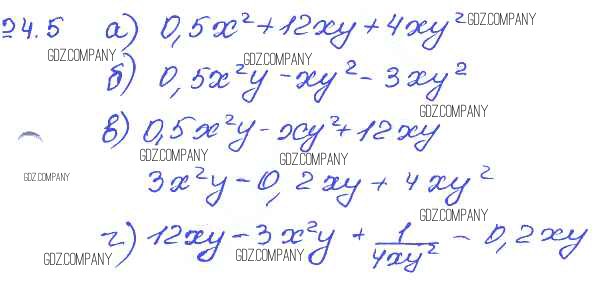 24.5 а) 0,5x² + 12xy + 4xy² GDZ.COMPANY
GDZ.COMPANY GDZ.COMPANY
б) 0,5x²y - xy² - 3xy²
GDZ.COMPANY
в) 0,5x²y - xy² + 12xy
GDZ.COMPANY GDZ.COMPANY
GDZ.COMPANY 3x²y - 0,2xy + 4xy²
GDZ.COMPANY
г) 12xy - 3x²y + 1/4xy² - 0,2xy
GDZ.COMPANY GDZ.COMPANY